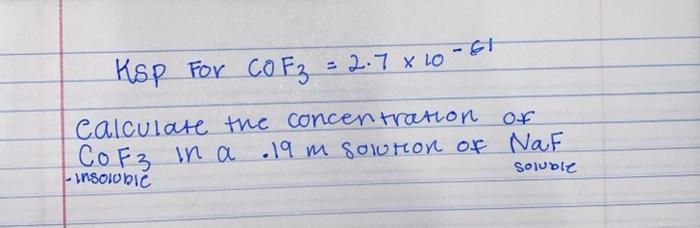 Ksp For COF3 = 2.7 x 10-61
Calculate the concentration of
COF3 in a .19 m solution of NaF
-insoluble
soluble